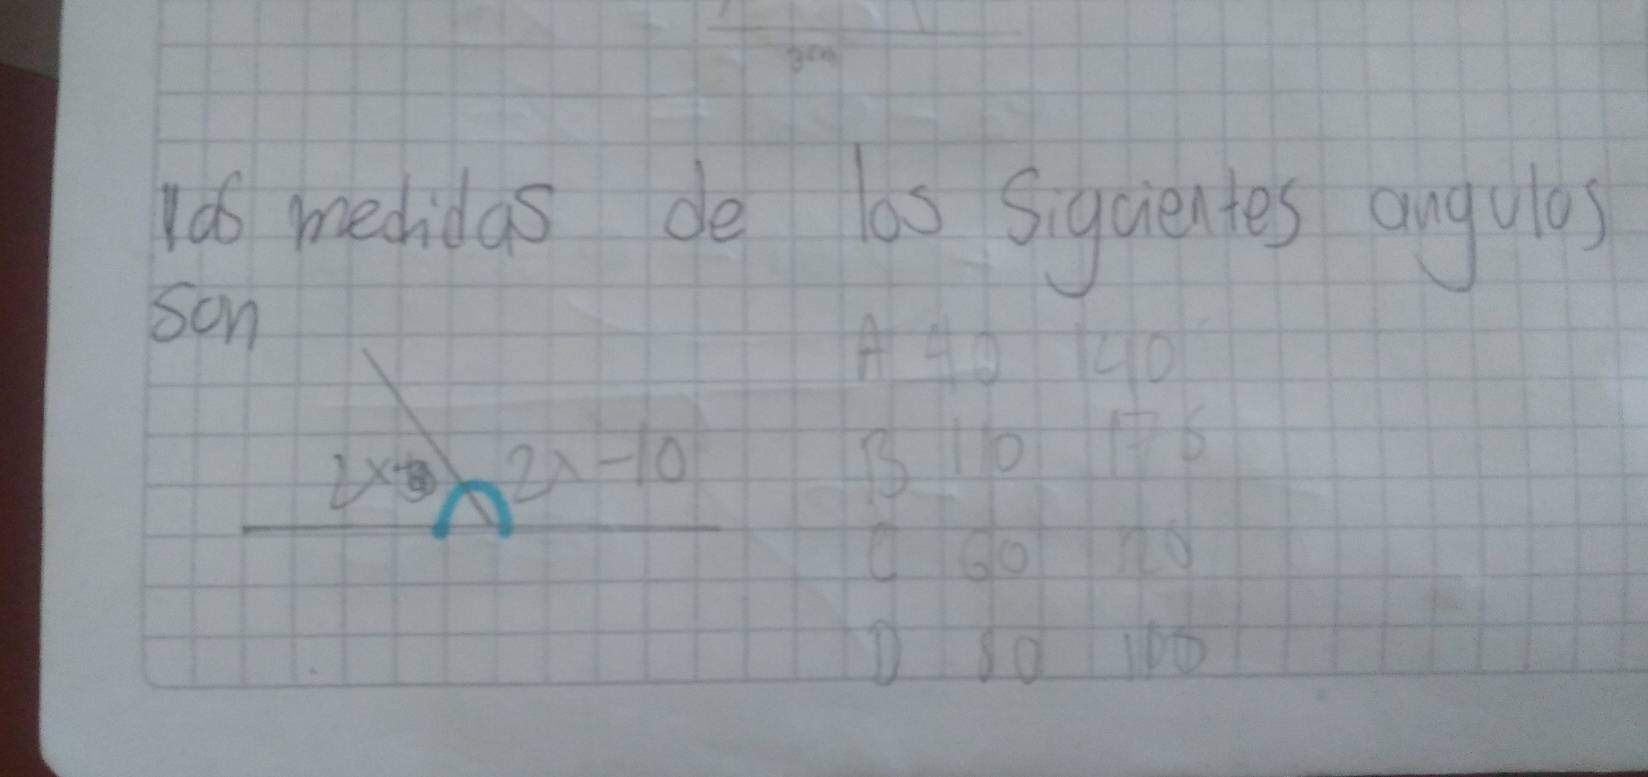 3cm
las medidas de los siguientes angulos
son
A 40 140
2x+3 2x-10
B 110 176
C 60 120
D 80 100